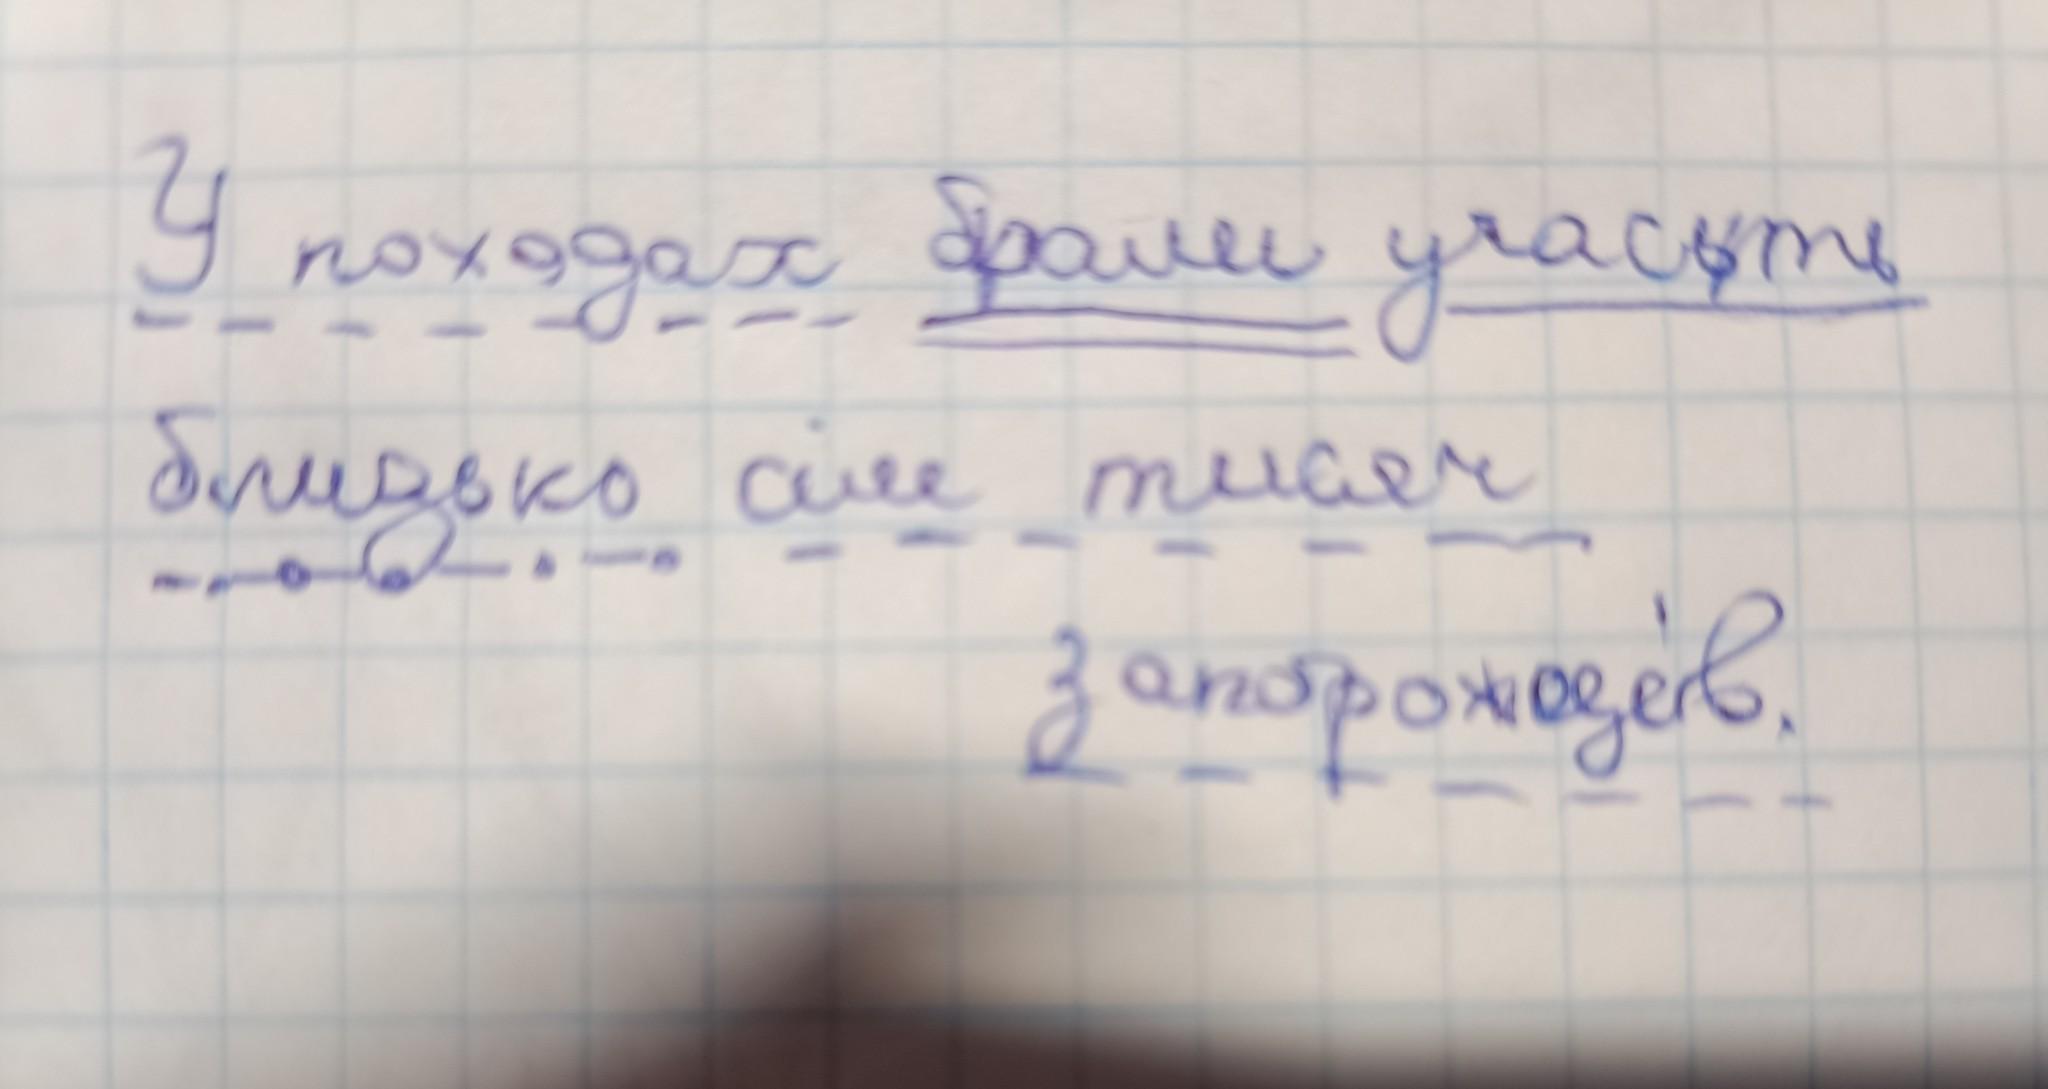 У походах брали участь
близько сім тисяч
запорожців.